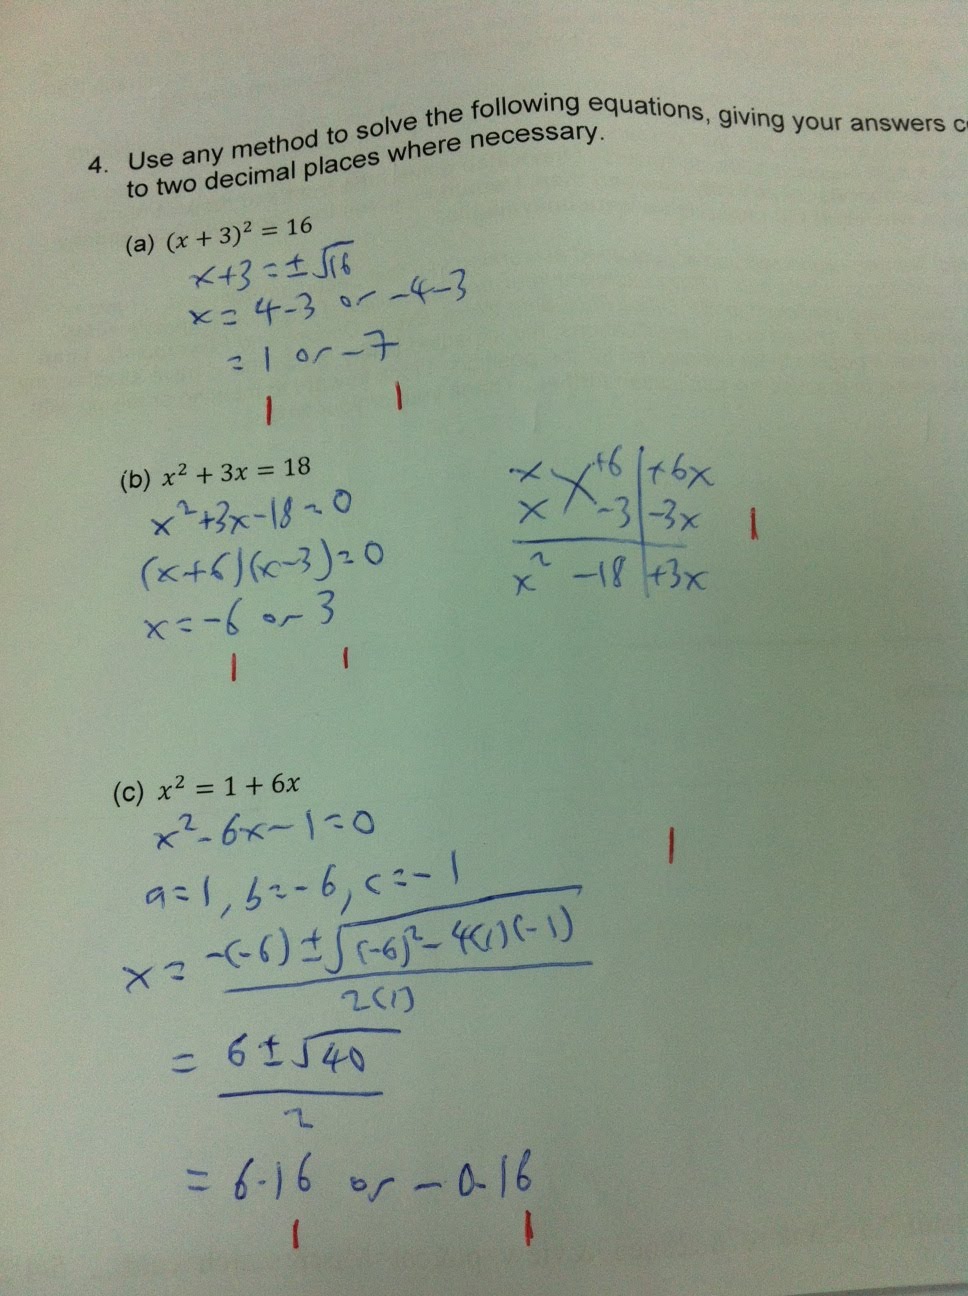 4. Use any method to solve the following equations, giving your answers
to two decimal places where necessary.
(a) (x + 3)² = 16
x+3 = ±√16
x = 4-3 or -4-3
= 1 or -7
1 1
(b) x² + 3x = 18
x²+3x-18=0
(x+6)(x-3)=0
x=-6 or 3
1 1
x +6 +6x
x -3 -3x 1
x² -18 +3x
(c) x² = 1 + 6x
x²-6x-1=0
1
a=1, b=-6, c=-1
x = -(-6) ± √(-6)²-4(1)(-1)
2(1)
= 6 ± √40
2
= 6.16 or -0.16
1 1